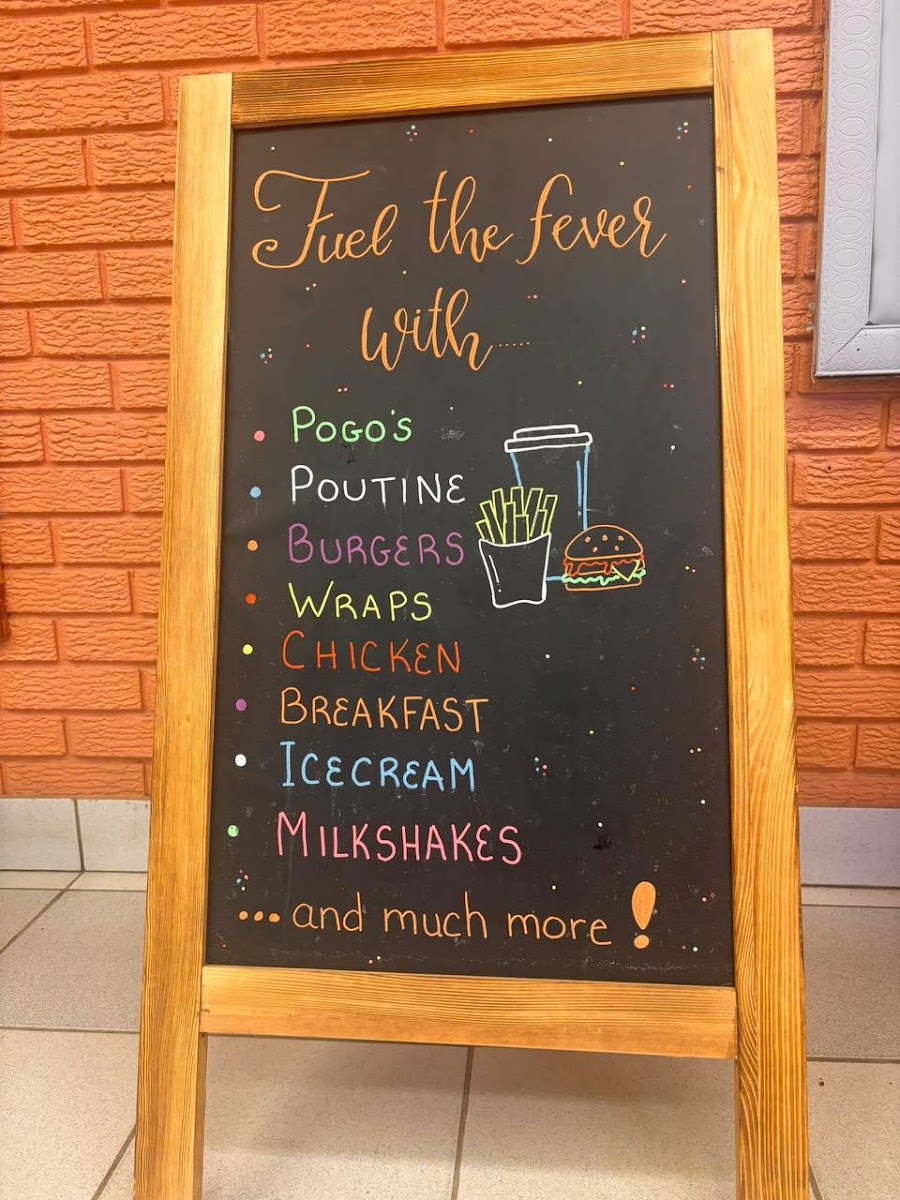 Fuel the fever
with.....
• POGO'S
• POUTINE
• BURGERS
• WRAPS
• CHICKEN
• BREAKFAST
• ICECREAM
• MILKSHAKES
... and much more!